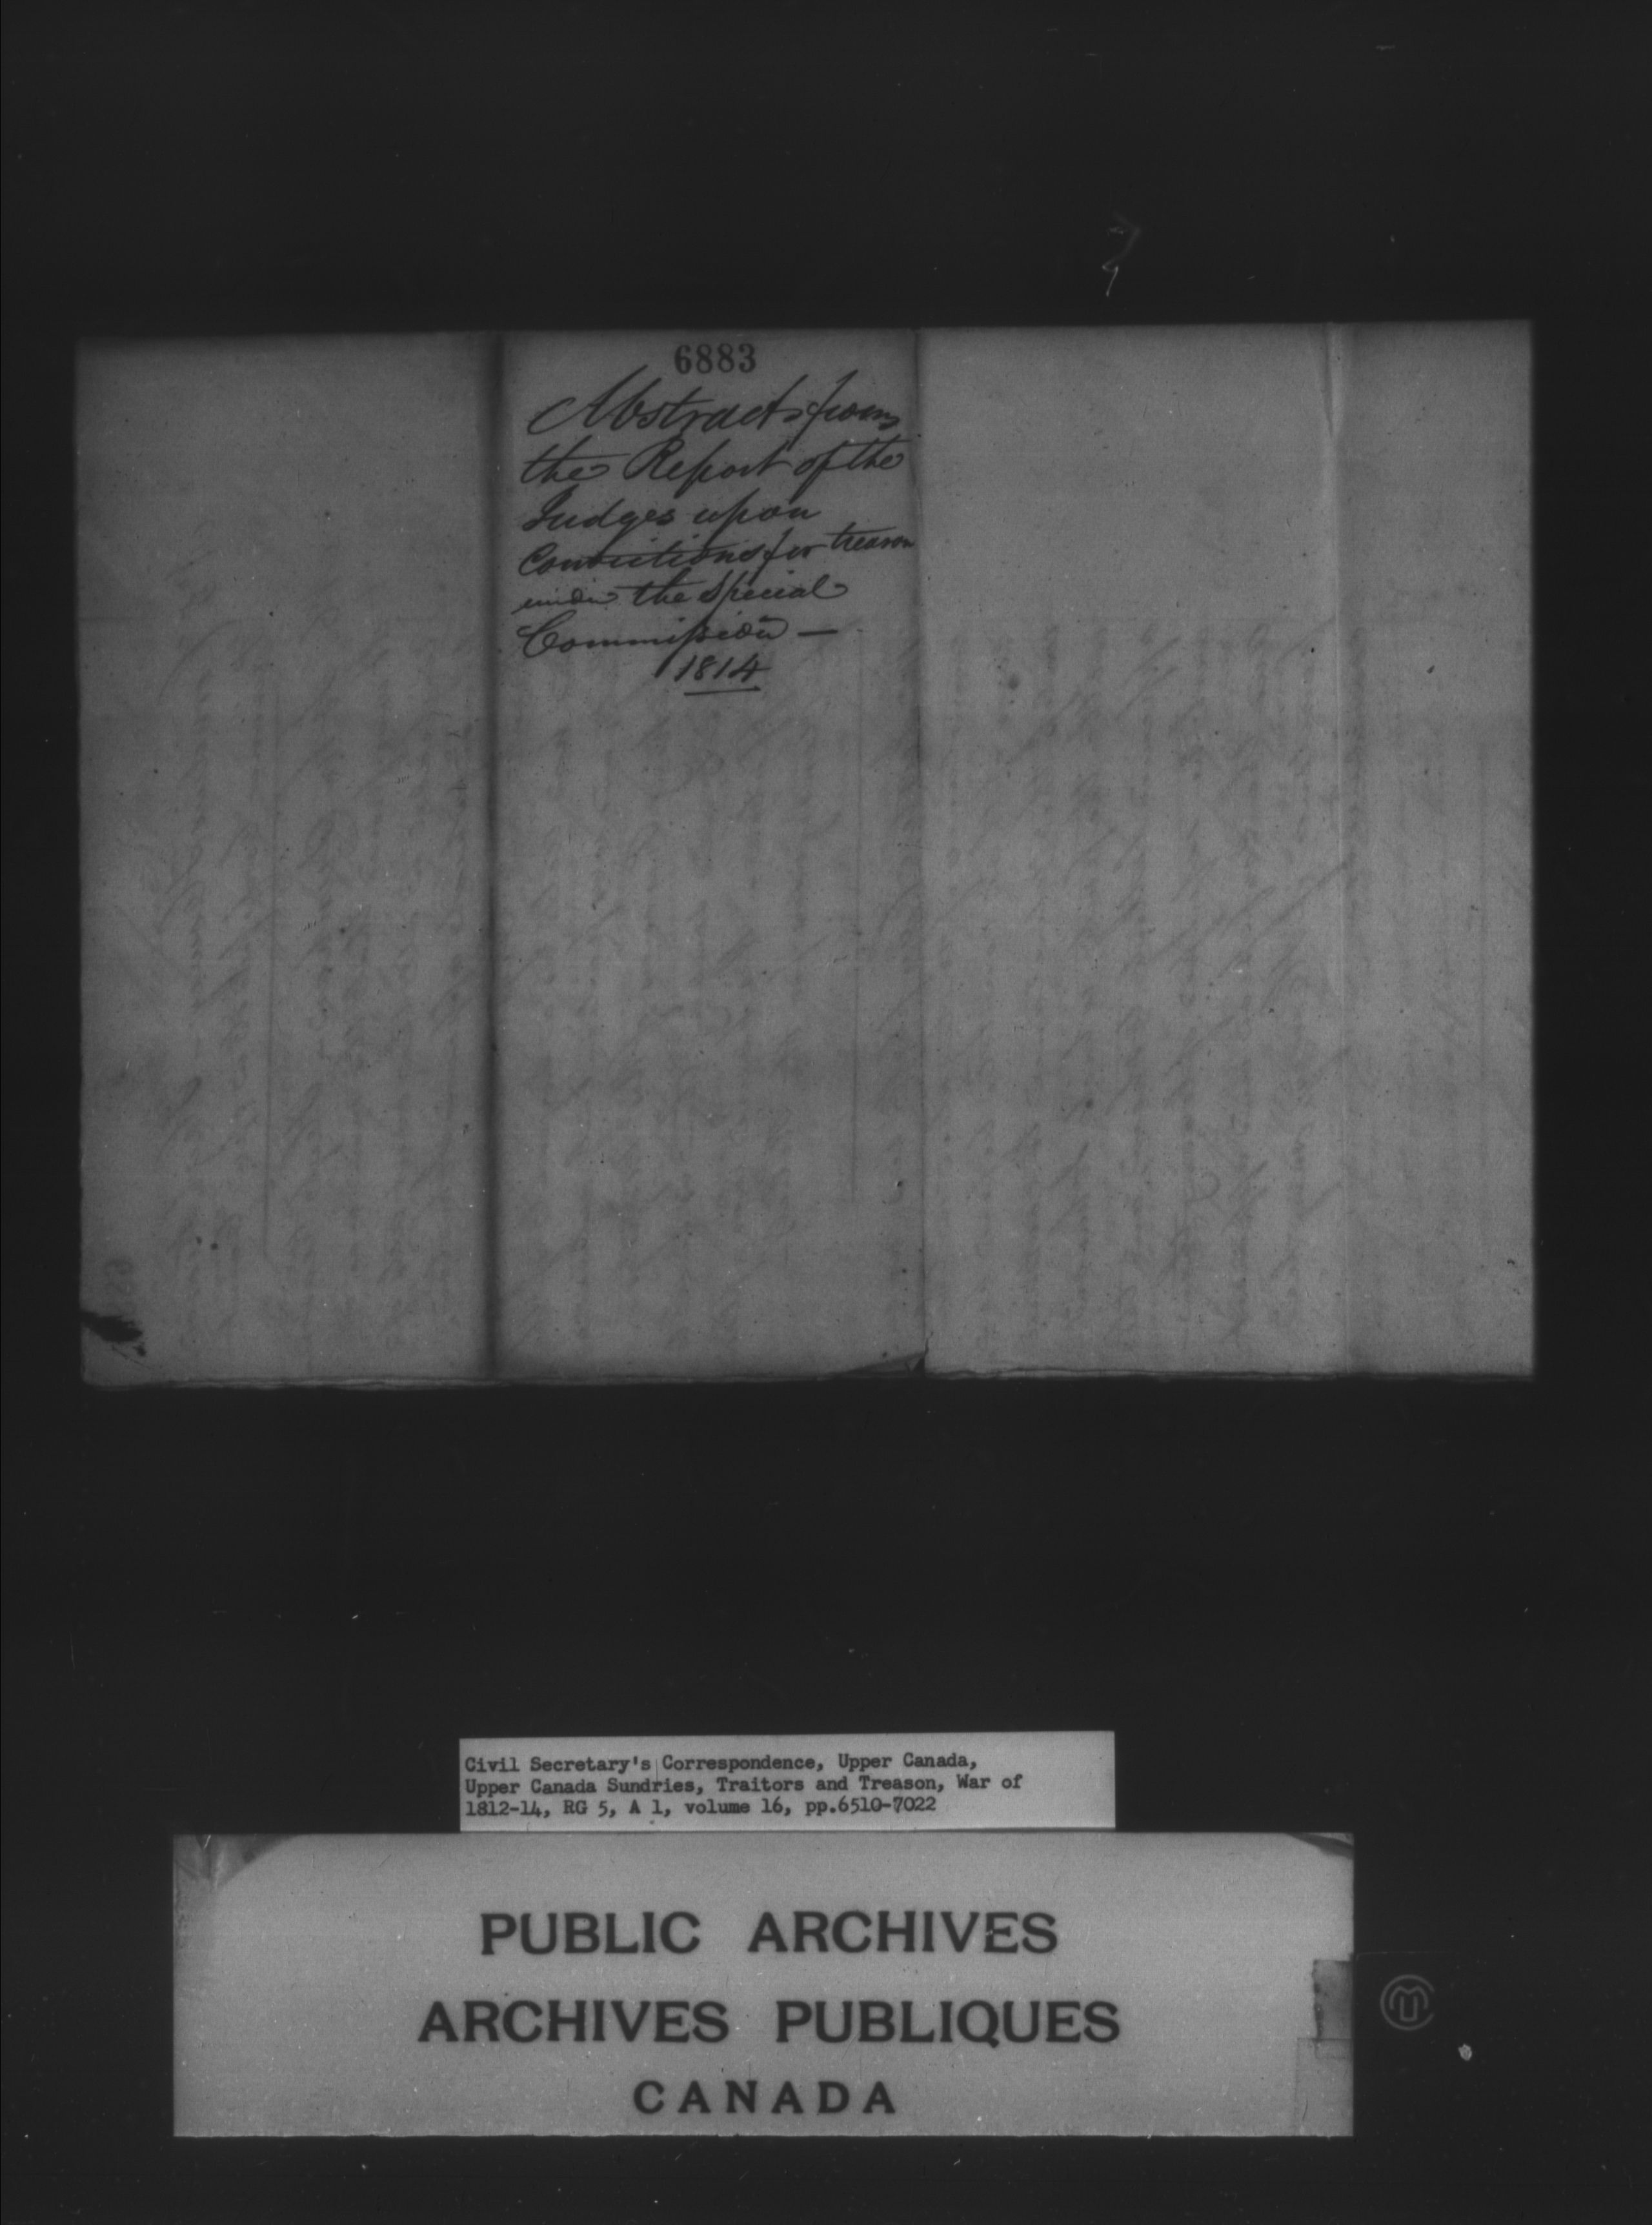 6883
Abstracts from
the Report of the
Judges upon
Convictions for treason
under the Special
Commission —
1814
Civil Secretary's Correspondence, Upper Canada,
Upper Canada Sundries, Traitors and Treason, War of
1812-14, RG 5, A 1, volume 16, pp.6510-7022
PUBLIC ARCHIVES
ARCHIVES PUBLIQUES
CANADA